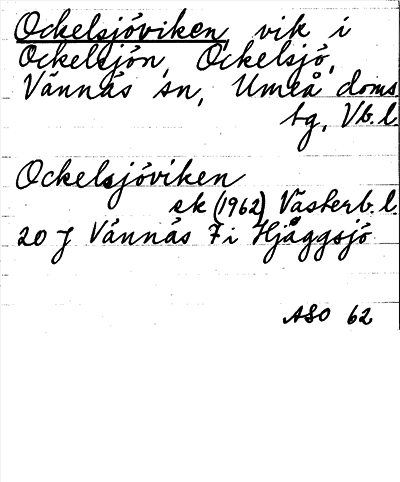 Ockelsjöviken, vik i
Ockelsjön, Ockelsjö,
Vännäs sn, Umeå doms
tg, Vb.l.
Ockelsjöviken
ek (1962) Västerb.l.
20 J Vännäs 7 i Hjåggsjö
ASO 62